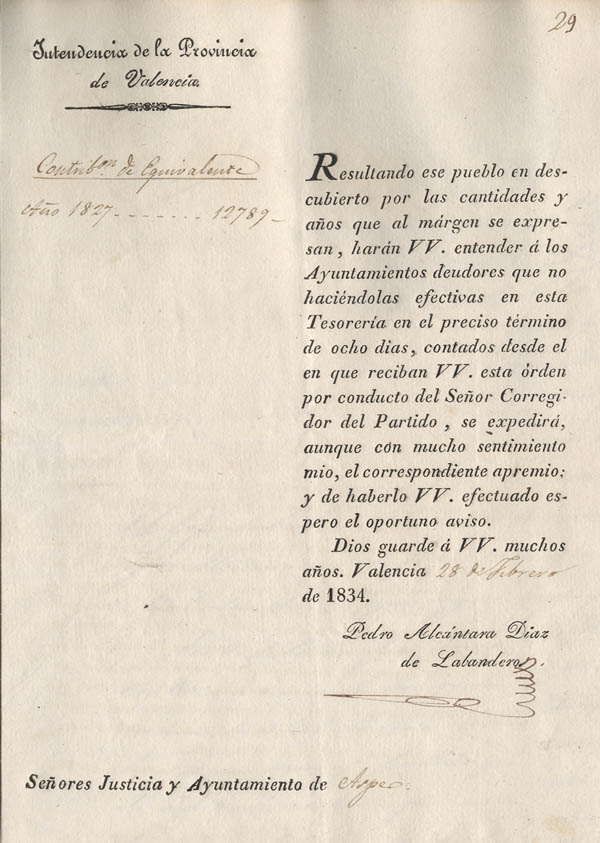 29
Intendencia de la Provincia
de Valencia.
Contribon. de Equivalente
Año 1827 - - - - - - - 12789 -
Resultando ese pueblo en des-
cubierto por las cantidades y
años que al márgen se expre-
san, harán VV. entender á los
Ayuntamientos deudores que no
haciéndolas efectivas en esta
Tesorería en el preciso término
de ocho dias, contados desde el
en que reciban VV. esta órden
por conducto del Señor Corregi-
dor del Partido, se expedirá,
aunque con mucho sentimiento
mio, el correspondiente apremio;
y de haberlo VV. efectuado es-
pero el oportuno aviso.
Dios guarde á VV. muchos
años. Valencia 28 de Febrero
de 1834.
Pedro Alcántara Diaz
de Labandero.
Señores Justicia y Ayuntamiento de Aspe